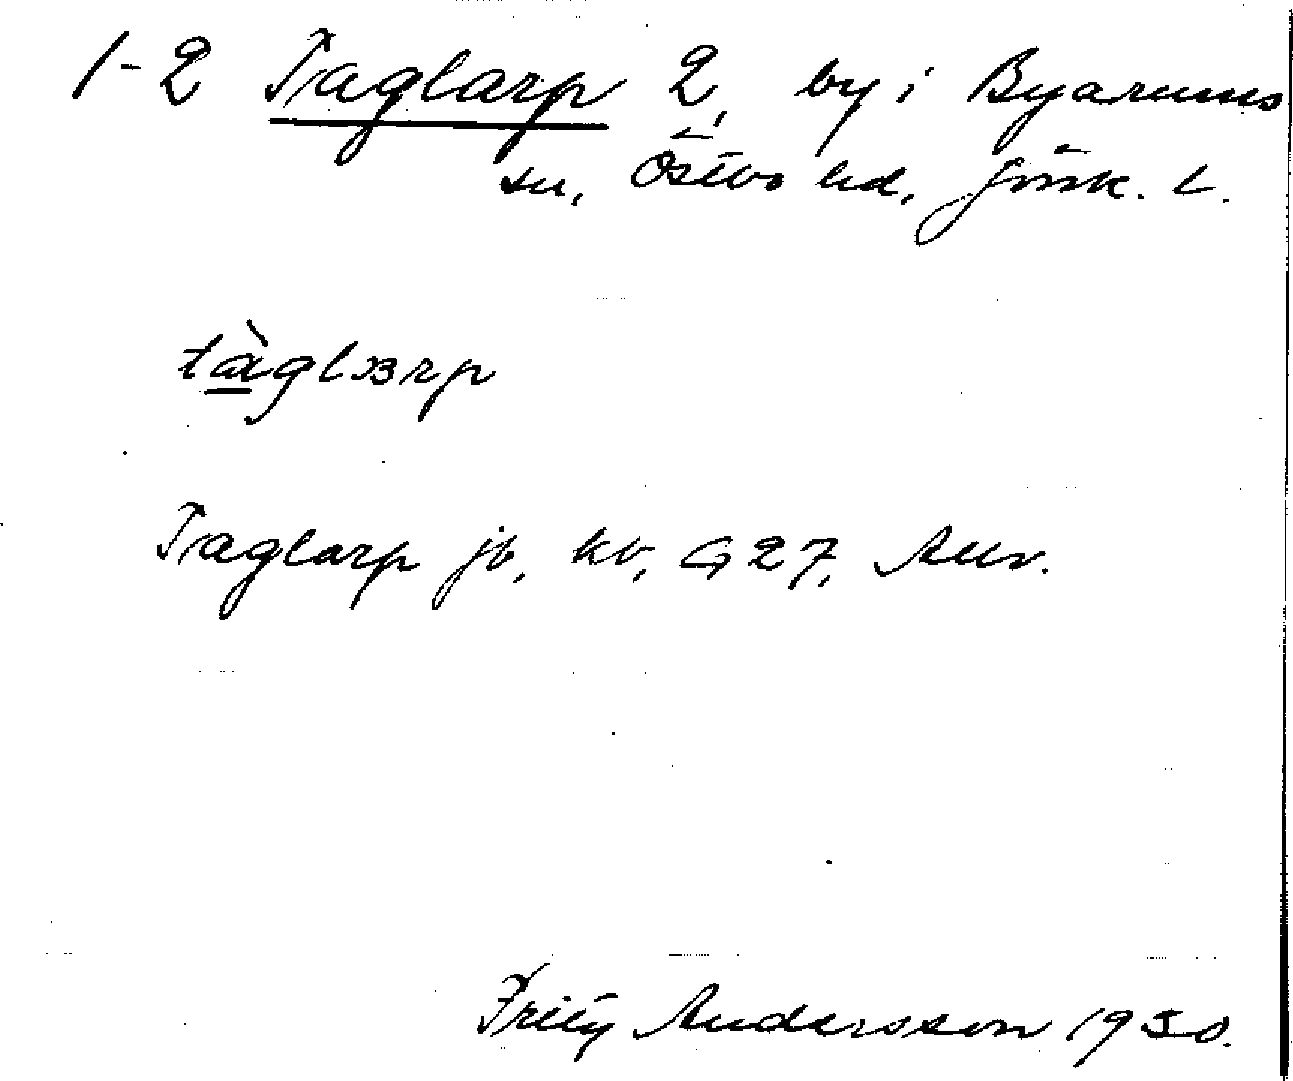 1-2 Taglarp 2, by i Byarums
sn, Östbo hd, Jönk. L.
tàglɜrp
Taglarp jb, kv, G 27, Allv.
Fritz Andersson 1930.